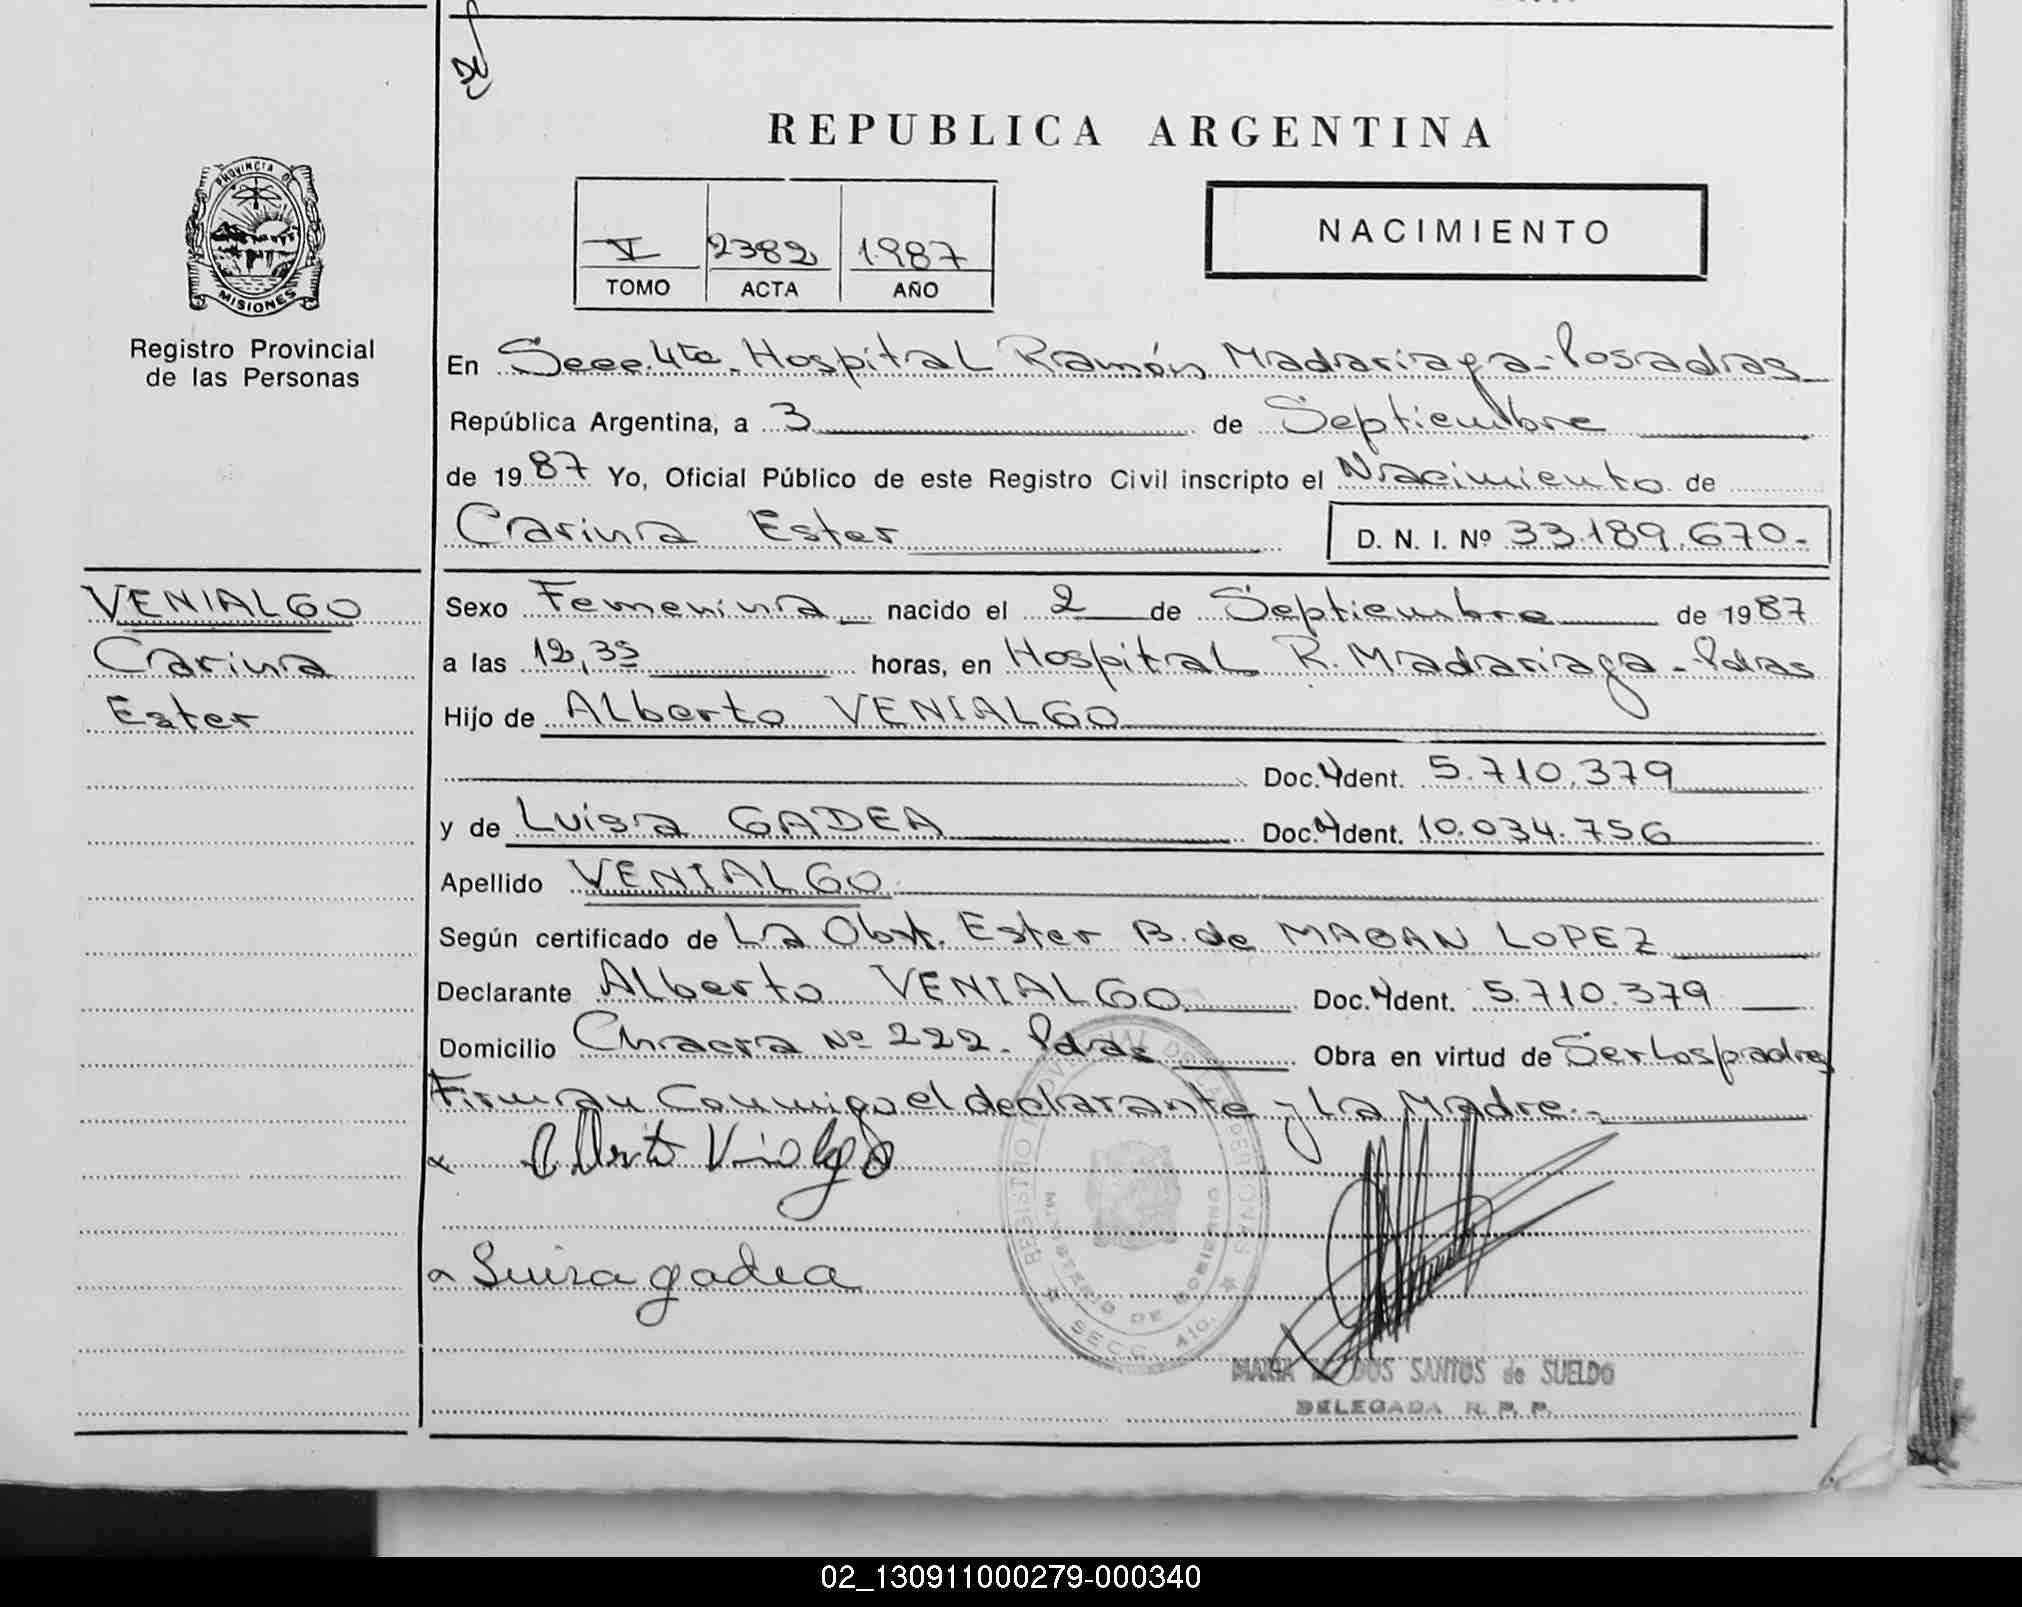 REPUBLICA ARGENTINA
PROVINCIA DE
MISIONES
Registro Provincial
de las Personas
V 2382 1987
TOMO ACTA AÑO
NACIMIENTO
En Secc. 4ta. Hospital Ramón Madariaga - Posadas
República Argentina, a 3 de Septiembre
de 1987 Yo, Oficial Público de este Registro Civil inscripto el Nacimiento de
Carina Ester D. N. I. Nº 33.189.670.-
VENIALGO
Carina
Ester
Sexo Femenina nacido el 2 de Septiembre de 1987
a las 12,35 horas, en Hospital R. Madariaga - Pdas
Hijo de Alberto VENIALGO
Doc. Ident. 5.710.379
y de Luisa GADEA Doc. Ident. 10.034.756
Apellido VENIALGO
Según certificado de La Obst. Ester B. de LOPEZ
Declarante Alberto VENIALGO Doc. Ident. 5.710.379
Domicilio Chacra Nº 222. Pdas Obra en virtud de Ser los padres
Firman Conmigo el declarante y La Madre.-
Luisa gadea
REGISTRO PROVINCIAL DE LAS PERSONAS
MINISTERIO DE GOBIERNO
SECC. 4ta.
MARIA DOS SANTOS de SUELDO
DELEGADA R. P. P.
02_130911000279-000340